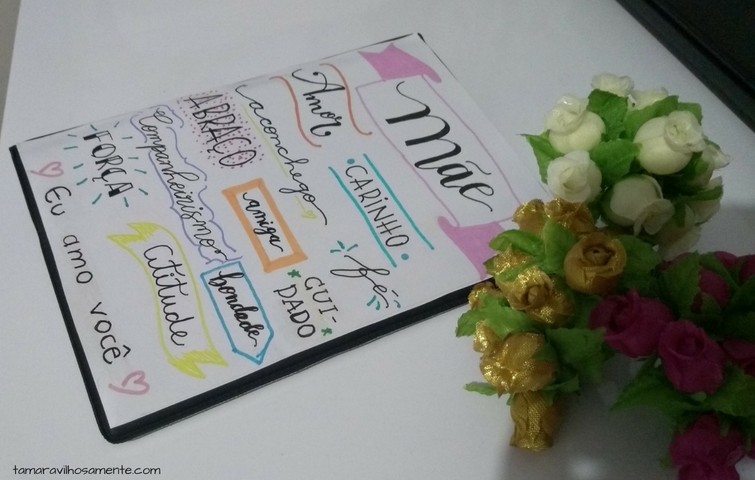 Mãe
Amor
CARINHO
aconchego
fé
ABRAÇO
amiga
CUI-
DADO
Companheirismo
bondade
FORÇA
Atitude
Eu amo você
tamaravilhosamente.com